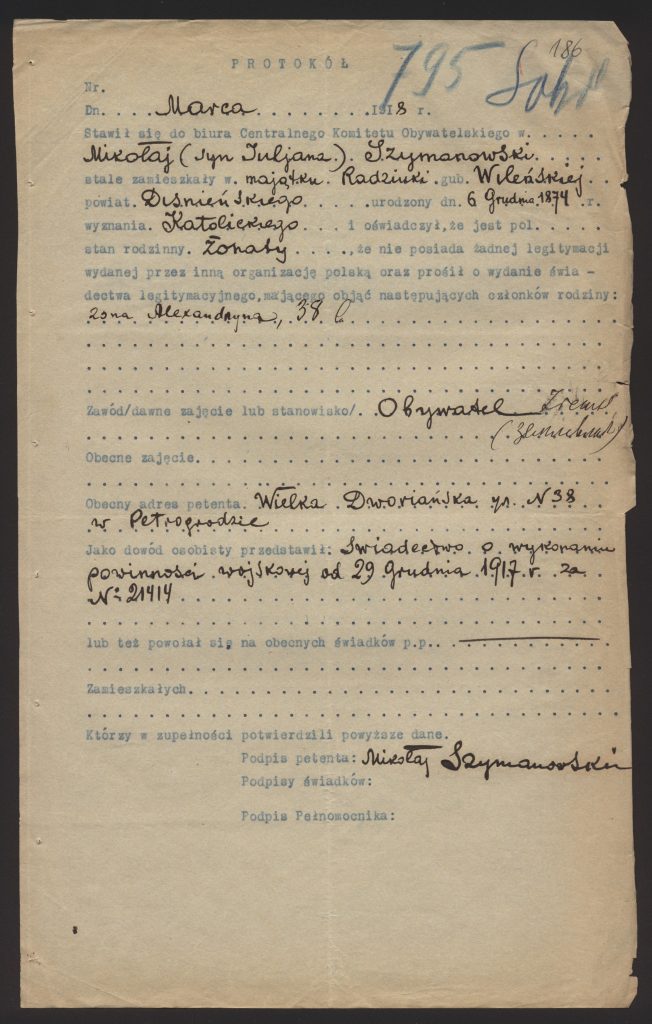 186
795
PROTOKÓŁ
Nr.
Dn. . . . Marca . . . . . . . . . 1918 r.
Stawił się do biura Centralnego Komitetu Obywatelskiego w. . . . . .
Mikołaj (syn Juljana). Szymanowski. . . . .
stale zamieszkały w. mająt.ku. Radziuki .gub. Wileńskiej. .
powiat. Diśnień s.kiego. . . . . .urodzony dn. 6 Grudnia 1874 .r.
wyznania. Katolickiego . . . i oświadczył,że jest pol. . . . .
stan rodzinny. Żonaty . . . .,że nie posiada żadnej legitymacji
wydanej przez inną organizację polską oraz prośił o wydanie świa -
dectwa legitymacyjnego,mającego objąć następujących członków rodziny:
żona Alexandryna, 38 l
Zawód/dawne zajęcie lub stanowisko/. . Obywatel
Obecne zajęcie. . . . . . . . . . . . . . . . . . . . . . . . .
Obecny adres petenta. Wielka Dworiańska ul. N 38
w Petrogrodzie
Jako dowód osobisty przedstawił: Swiadectwo o wykonaniu
powinności wojskowej od 29 Grudnia 1917 r. za
№ 21414
lub też powołał się na obecnych świadków p.p. .
Zamieszkałych. . . . . . . . . . . . . . . . . . . . . . . . .
Którzy w zupełności potwierdzili powyższe dane.
Podpis petenta: Mikołaj Szymanowski
Podpisy świadków:
Podpis Pełnomocnika: